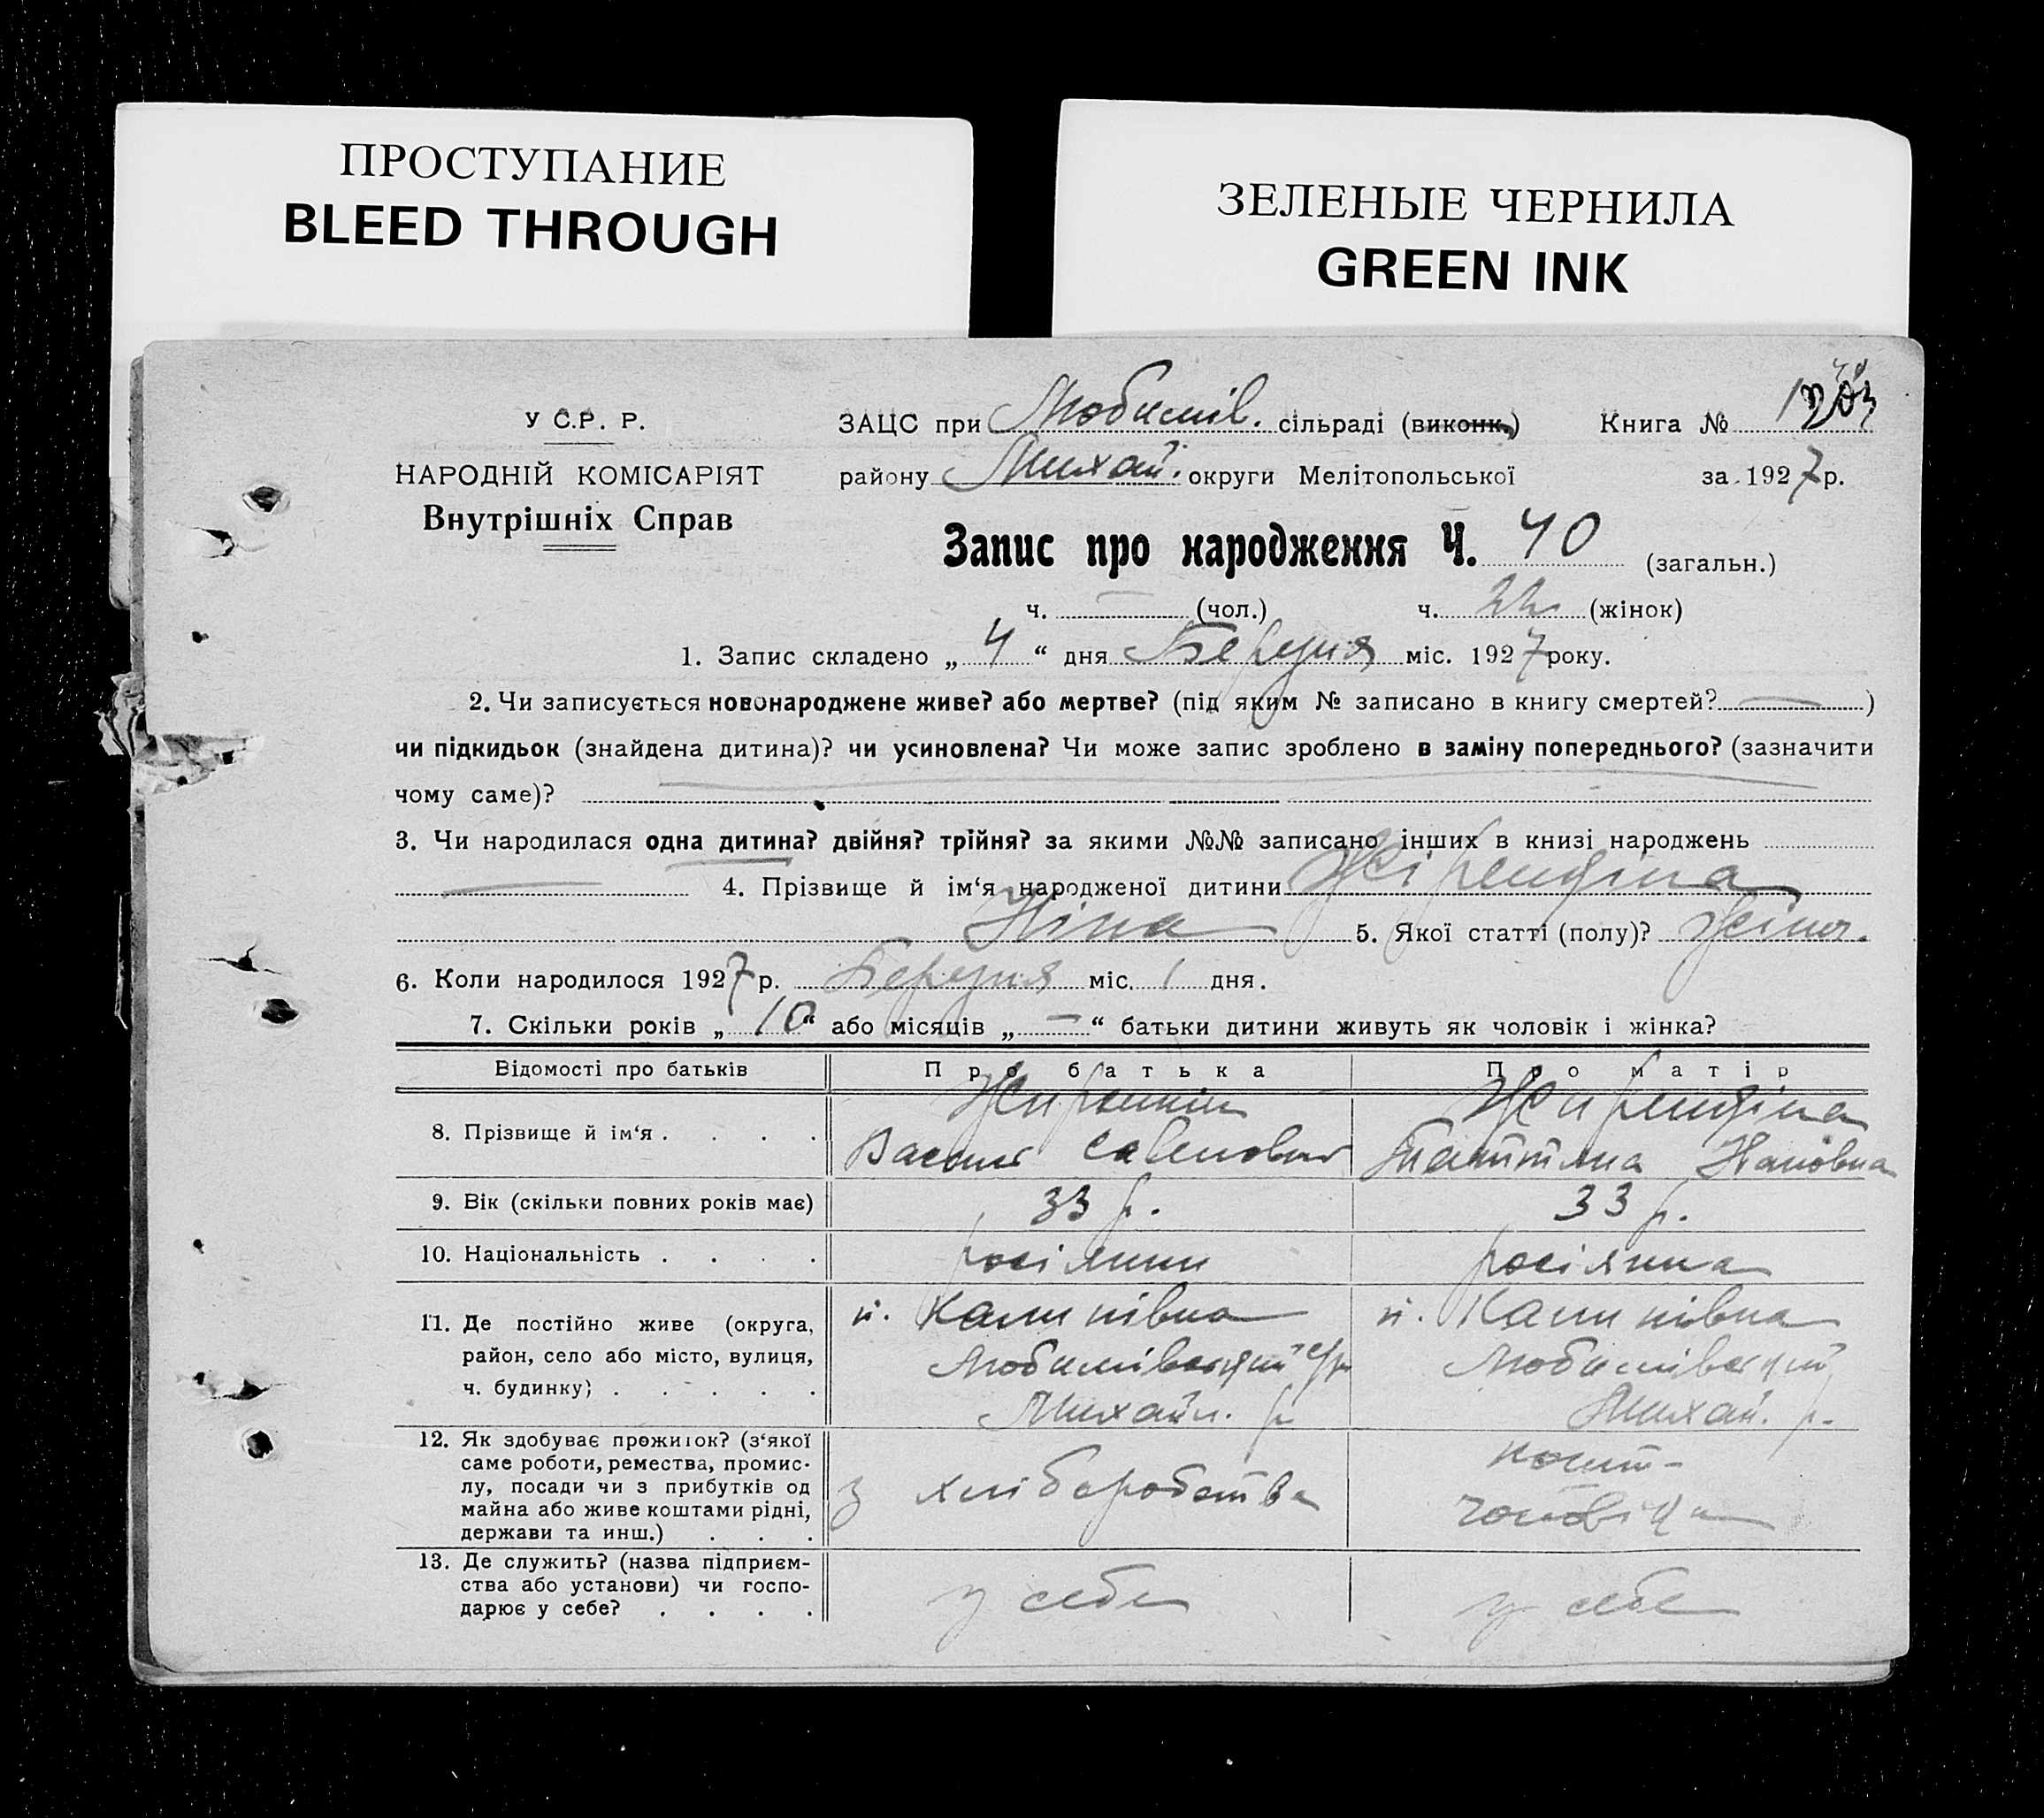 ПРОСТУПАНИЕ
BLEED THROUGH
ЗЕЛЕНЫЕ ЧЕРНИЛА
GREEN INK
У С.Р. Р.
НАРОДНІЙ КОМІСАРІЯТ
Внутрішніх Справ
ЗАЦС при Любимів. сільраді (виконк.) Книга №
району Михай. округи Мелітопольської за 1927 р.
Запис про народження Ч. 40 (загальн.)
ч. — (чол.) ч. 22 (жінок)
1. Запис складено „ 4 “ дня Березня міс. 1927 року.
2. Чи записується новонароджене живе? або мертве? (під яким № записано в книгу смертей? — )
чи підкидьок (знайдена дитина)? чи усиновлена? Чи може запис зроблено в заміну попереднього? (зазначити
чому саме)?
3. Чи народилася одна дитина? двійня? трійня? за якими №№ записано інших в книзі народжень
— 4. Прізвище й ім‘я народженої дитини
Ніна 5. Якої статті (полу)? жіноч.
6. Коли народилося 1927 р. Березня міс. 1 дня.
7. Скільки років „ 10 “ або місяців „ — “ батьки дитини живуть як чоловік і жінка?
Відомості про батьків Про батька Про матір
8. Прізвище й ім‘я . . . .
Василь Савелович Таттяна
9. Вік (скільки повних років має) 33 р. 33 р.
10. Національність . . . . росіянин росіянка
11. Де постійно живе (округа, район, село або місто, вулиця, ч. будинку) . . . . .
п. Калинівка п. Калинівка
Любимівський с/р Любимівський
Михайл. р. Михай. р.
12. Як здобуває прожиток? (з‘якої саме роботи, ремества, промислу, посади чи з прибутків од майна або живе коштами рідні, держави та инш.) . . .
з хліборобства кошт-
чоловіка
13. Де служить? (назва підприємства або установи) чи господарює у себе? . . . .
у себе у себе